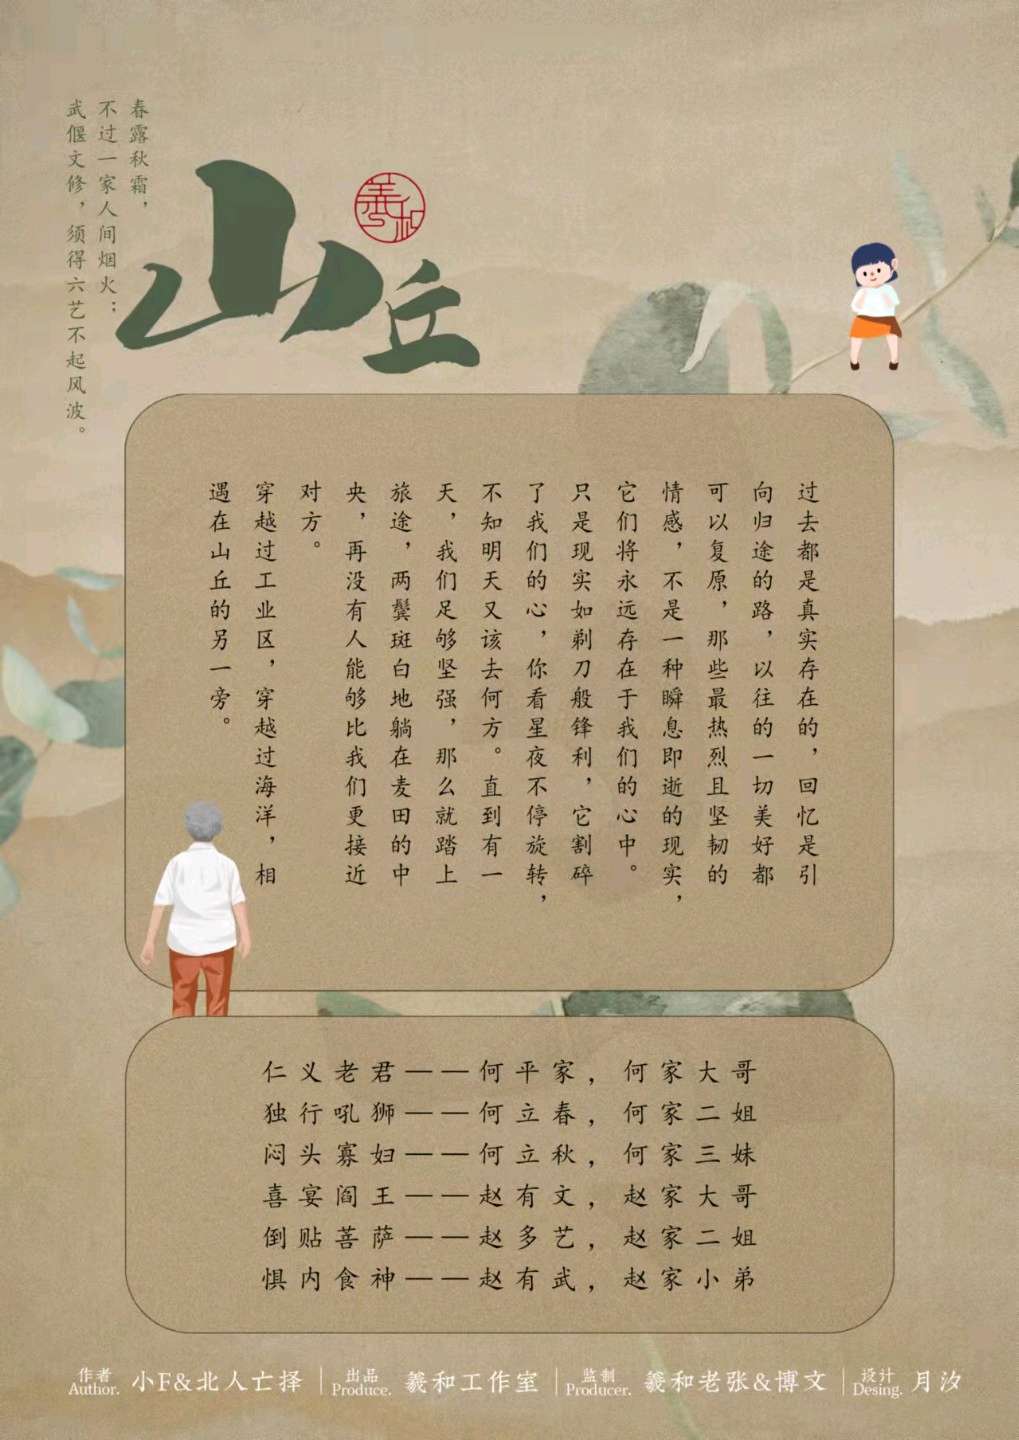 春露秋霜，
不过一家人间烟火；
武偃文修，须得六艺不起风波。
山丘
羲和
过去都是真实存在的，回忆是引
向归途的路，以往的一切美好都
可以复原，那些最热烈且坚韧的
情感，不是一种瞬息即逝的现实，
它们将永远存在于我们的心中。
只是现实如剃刀般锋利，它割碎
了我们的心，你看星夜不停旋转，
不知明天又该去何方。直到有一
天，我们足够坚强，那么就踏上
旅途，两鬓斑白地躺在麦田的中
央，再没有人能够比我们更接近
对方。
穿越过工业区，穿越过海洋，相
遇在山丘的另一旁。
仁义老君——何平家，何家大哥
独行吼狮——何立春，何家二姐
闷头寡妇——何立秋，何家三妹
喜宴阎王——赵有文，赵家大哥
倒贴菩萨——赵多艺，赵家二姐
惧内食神——赵有武，赵家小弟
作者 Author. 小F&北人亡择
出品 Produce. 羲和工作室
监制 Producer. 羲和老张&博文
设计 Desing. 月汐